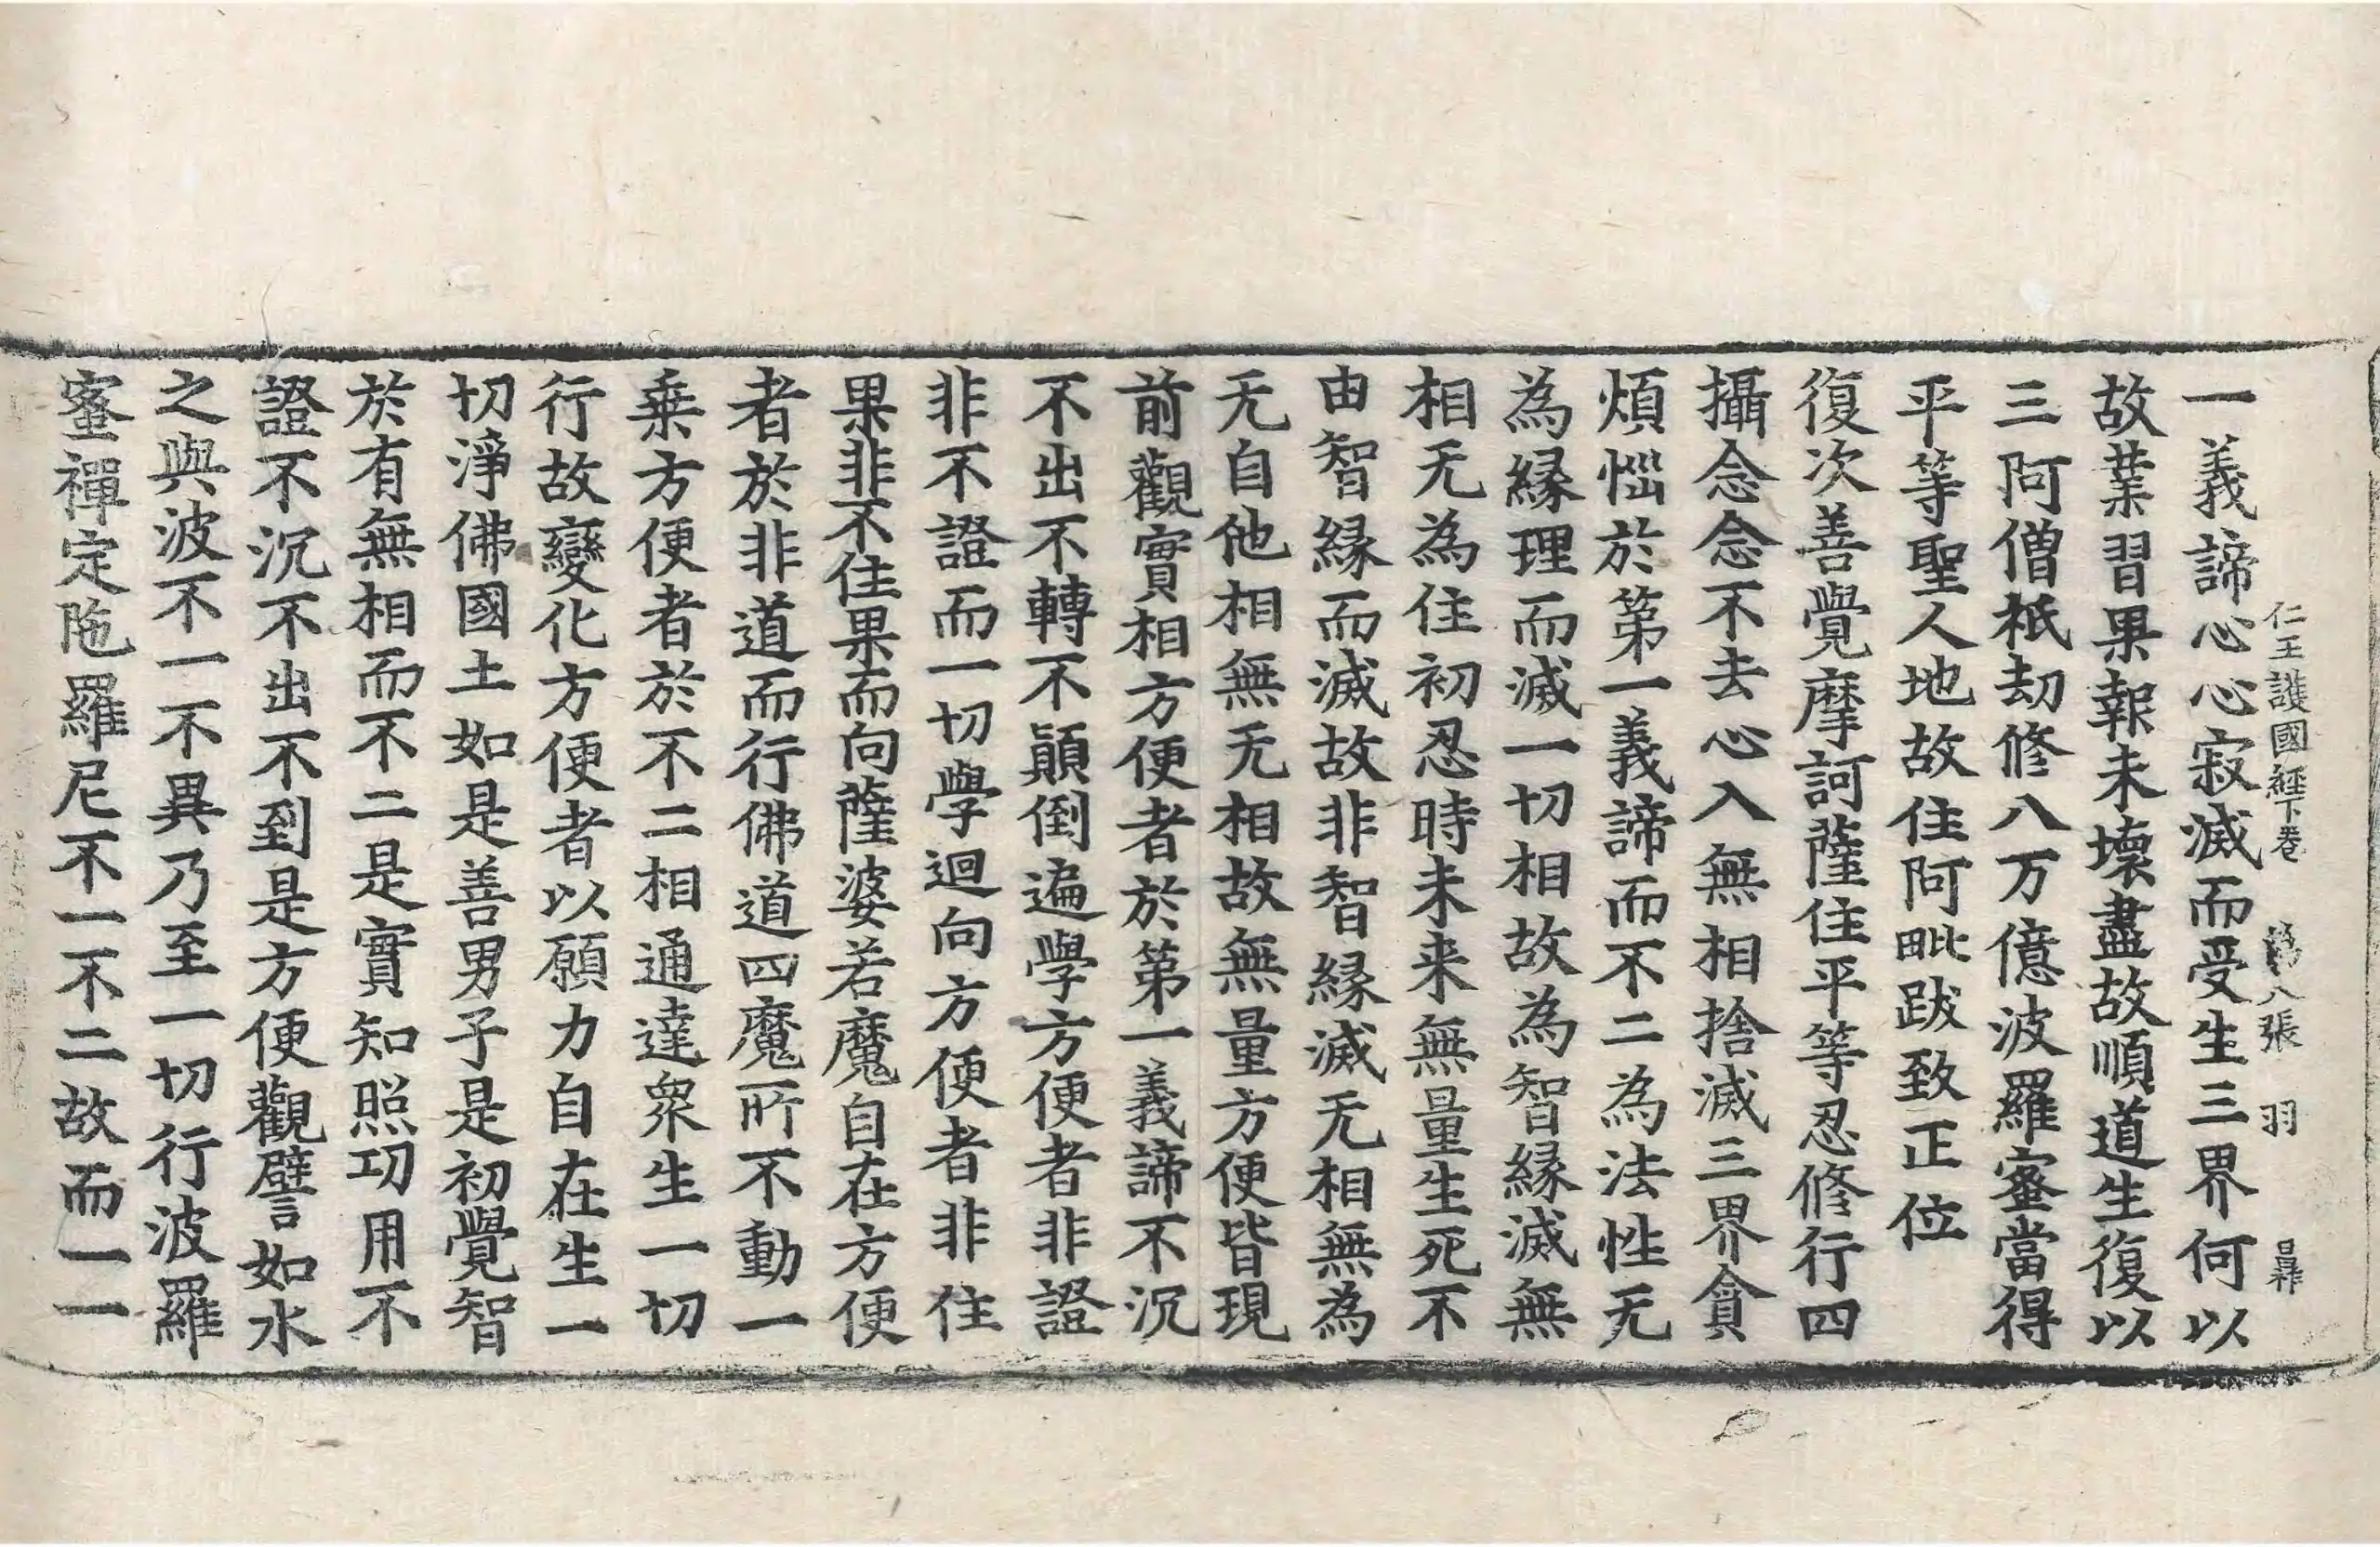 仁王護國經下卷 第八張 羽
一義諦心心寂滅而受生三界何以
故業習果報未壞盡故順道生復以
三阿僧祇劫修八万億波羅蜜當得
平等聖人地故住阿毗跋致正位
復次善覺摩訶薩住平等忍修行四
攝念念不去心入無相捨滅三界貪
煩惱於第一義諦而不二為法性无
為緣理而滅一切相故為智緣滅無
相无為住初忍時未来無量生死不
由智緣而滅故非智緣滅无相無為
无自他相無无相故無量方便皆現
前觀實相方便者於第一義諦不沉
不出不轉不顛倒遍學方便者非證
非不證而一切學迴向方便者非住
果非不住果而向薩婆若魔自在方便
者於非道而行佛道四魔所不動一
乗方便者於不二相通達衆生一切
行故變化方便者以願力自在生一
切淨佛國土如是善男子是初覺智
於有無相而不二是實知照㓛用不
證不沉不出不到是方便觀譬如水
之與波不一不異乃至一切行波羅
蜜禪定陁羅尼不一不二故而一一